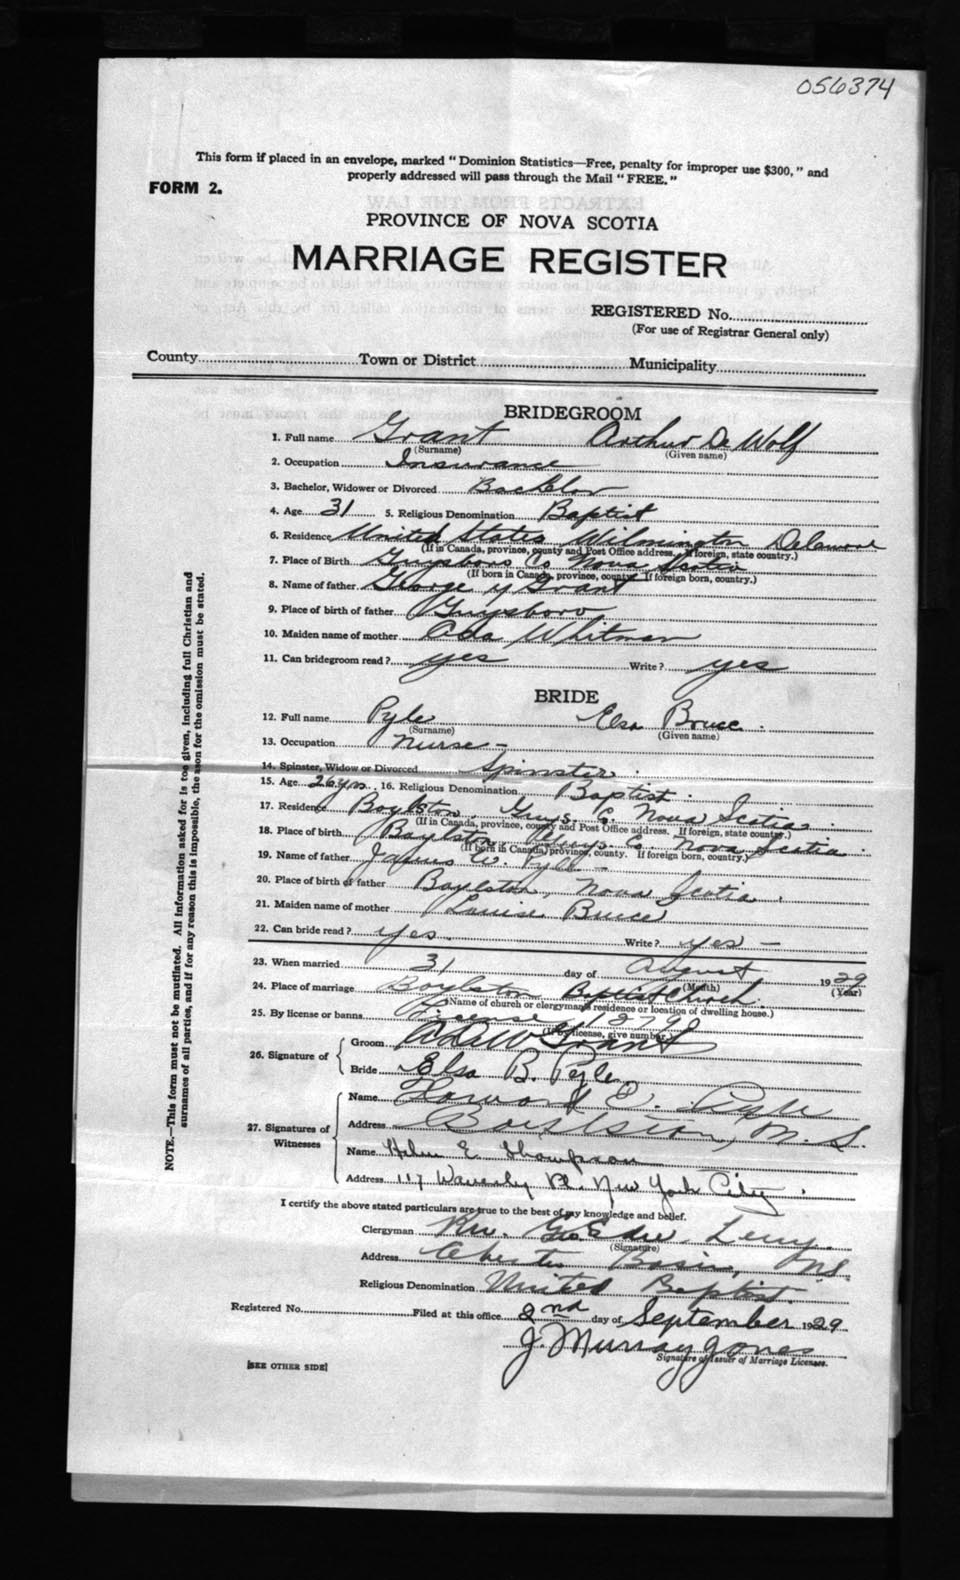 056374
This form if placed in an envelope, marked "Dominion Statistics—Free, penalty for improper use $300," and
properly addressed will pass through the Mail "FREE."
FORM 2.
PROVINCE OF NOVA SCOTIA
MARRIAGE REGISTER
REGISTERED No.
(For use of Registrar General only)
County Town or District Municipality
BRIDEGROOM
1. Full name Grant Arthur De Wolf
(Surname) (Given name)
2. Occupation Insurance
3. Bachelor, Widower or Divorced Bachelor
4. Age 31 5. Religious Denomination Baptist
6. Residence United States Wilmington Delaware
(If in Canada, province, county and Post Office address. If foreign, state country.)
7. Place of Birth Guysboro Co Nova Scotia
(If born in Canada, province, county. If foreign born, country.)
8. Name of father George Y Grant
9. Place of birth of father Guysboro
10. Maiden name of mother Ada Whitman
11. Can bridegroom read? yes Write? yes
BRIDE
12. Full name Pyle Elsa Bruce
(Surname) (Given name)
13. Occupation Nurse —
14. Spinster, Widow or Divorced Spinster
15. Age 26 yrs. 16. Religious Denomination Baptist
17. Residence Boylston, Guys. Co. Nova Scotia
(If in Canada, province, county and Post Office address. If foreign, state country.)
18. Place of birth Boylston, Guys Co. Nova Scotia
(If born in Canada, province, county. If foreign born, country.)
19. Name of father James W. Pyle —
20. Place of birth of father Boylston, Nova Scotia
21. Maiden name of mother Louise Bruce
22. Can bride read? yes Write? yes —
23. When married 31 day of August 1929
(Month) (Year)
24. Place of marriage Boylston Baptist Church.
(Name of church or clergyman's residence or location of dwelling house.)
25. By license or banns License
(If by license, give number.)
26. Signature of Groom A DeW Grant
Bride Elsa B. Pyle
27. Signatures of Witnesses
Name Howard E. Pyle
Address Boylston, N. S.
Name Helen E. Thompson
Address 117 Waverly Pl. New York City
I certify the above stated particulars are true to the best of my knowledge and belief.
Clergyman Rev. Geo. Levy.
(Signature)
Address Chester Basin, NS.
Religious Denomination United Baptist.
Registered No. Filed at this office 2nd day of September 1929
J. Murray Jones
Signature of Issuer of Marriage Licenses.
[SEE OTHER SIDE]
NOTE.—This form must not be mutilated. All information asked for is to be given, including full Christian and
surnames of all parties, and if for any reason this is impossible, the reason for the omission must be stated.